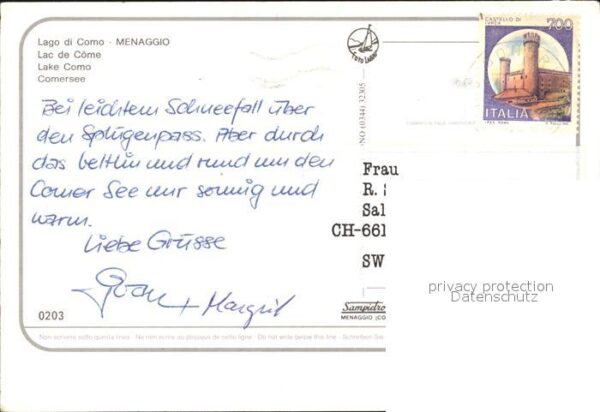 Lago di Como - MENAGGIO
Lac de Côme
Lake Como
Comersee
Bei leichtem Schneefall über
den Splügenpass. Aber durch
das Veltlin und rund um den
Comer See nur sonnig und
warm.
Liebe Grüsse
+ Margrit
0203
Non scrivere sotto questa linea - Ne rien écrire au dessous de cette ligne - Do not write below this line - Schreiben Sie
FOTO LABO
(0344) 32305
Sampietro
MENAGGIO (CO
CASTELLO DI
IVREA
700
ITALIA
Frau
R.
Sal
CH-661
SW
privacy protection
Datenschutz